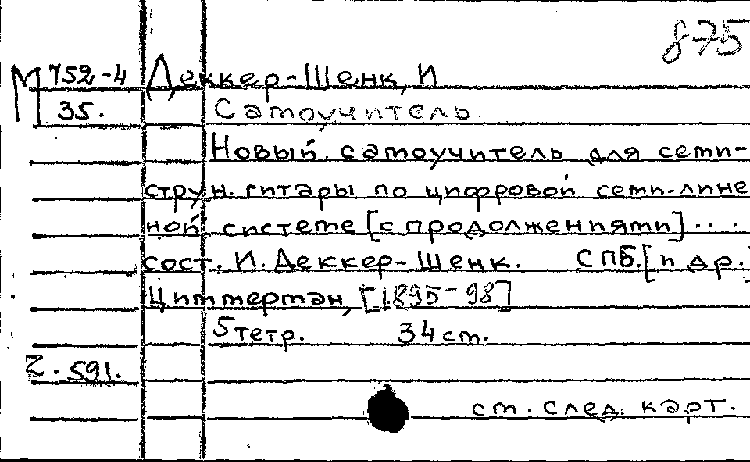 875
М 752-4 Деккер-Шенк, И
35. Самоучитель
Новый самоучитель для семи-
струн. гитары по цифровой семи-лине
ной системе [с продолжениями]...
сост. И. Деккер-Шенк. СПБ. [и др.]
Циммерман, [1895-98]
5 тетр. 34 см.
Z. 591.
см. след. карт.